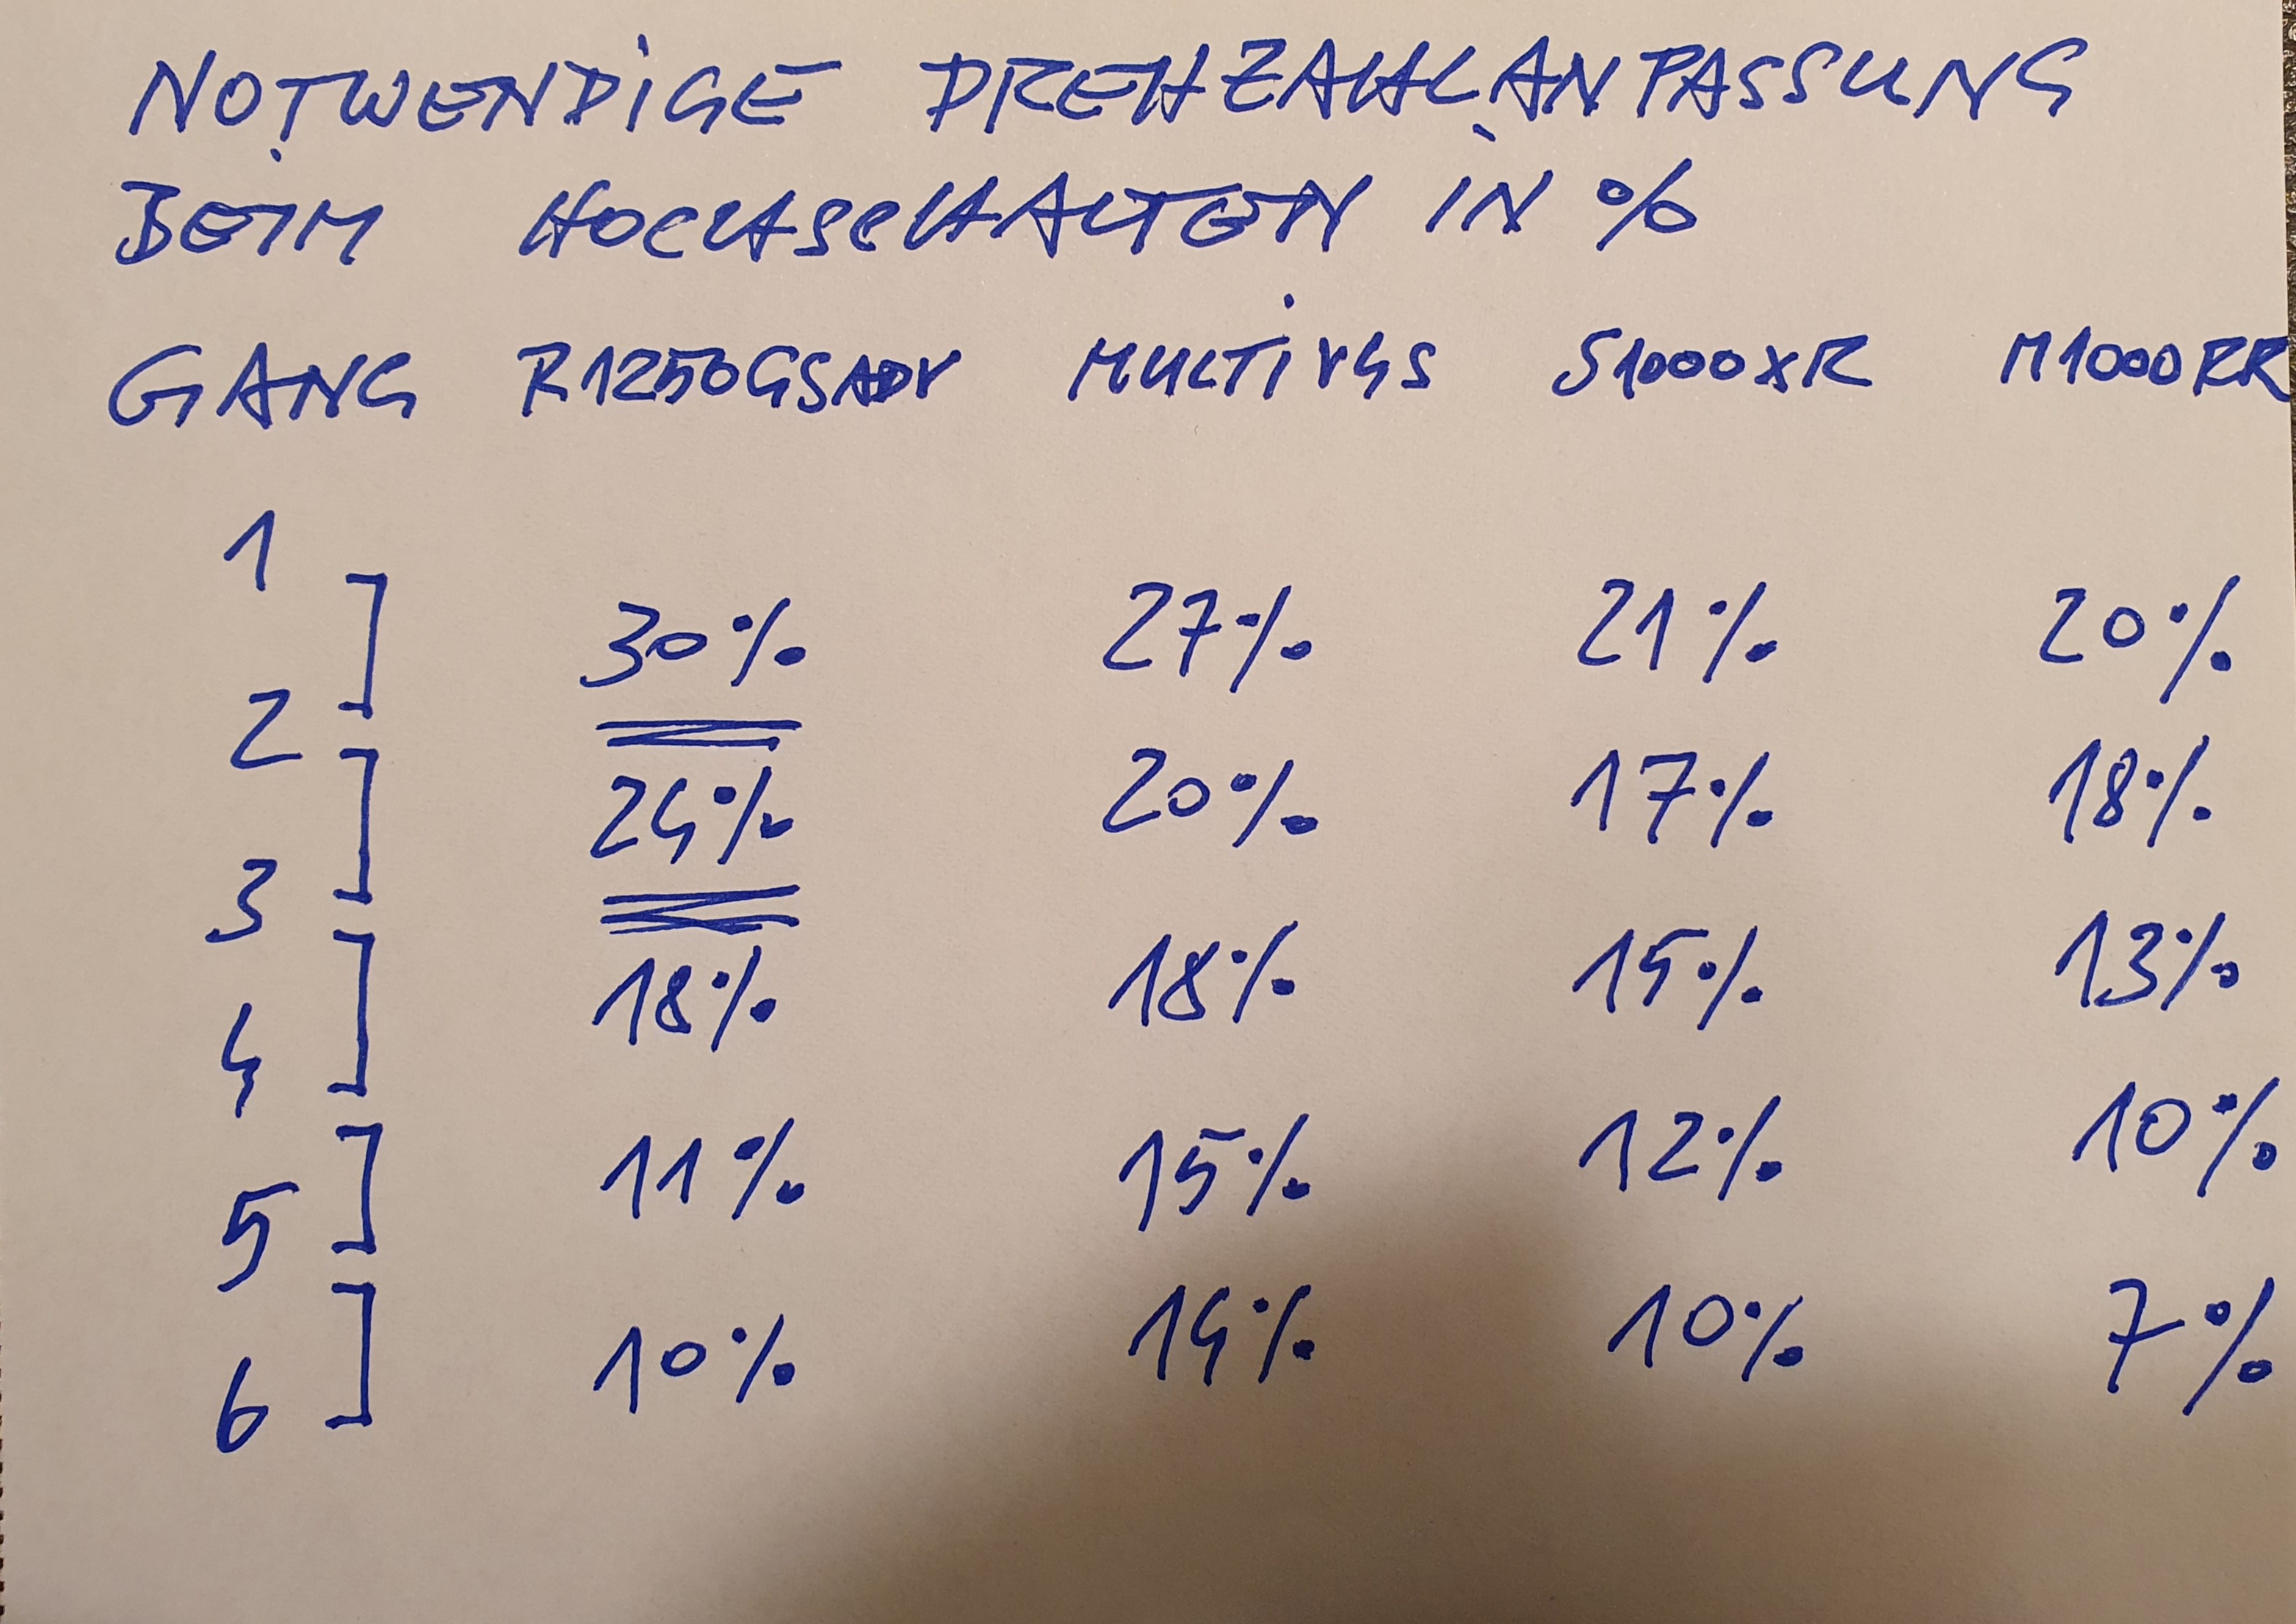 NOTWENDIGE DREHZAHLANPASSUNG
BEIM HOCHSCHALTEN IN %
GANG R1250GSADV MULTIV4S S1000XR M1000RR
1
30% 27% 21% 20%
2
24% 20% 17% 18%
3
18% 18% 15% 13%
4
11% 15% 12% 10%
5
10% 14% 10% 7%
6